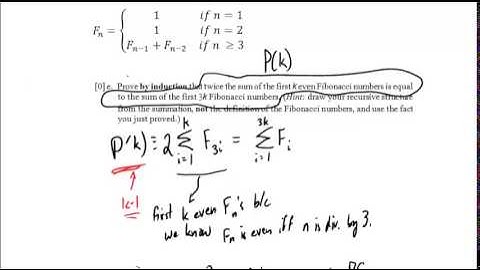 F_n = { 1 if n = 1
1 if n = 2
F_{n−1} + F_{n−2} if n ≥ 3
P(k)
[0] e. Prove by induction that twice the sum of the first k even Fibonacci numbers is equal
to the sum of the first 3k Fibonacci numbers. (Hint: draw your recursive structure
from the summation, not the definition of the Fibonacci numbers, and use the fact
you just proved.)
P(k) ≡ 2 ∑_{i=1}^{k} F_{3i} = ∑_{i=1}^{3k} F_i
k-1
first k even F_n's b/c
we know F_n is even iff n is div. by 3.